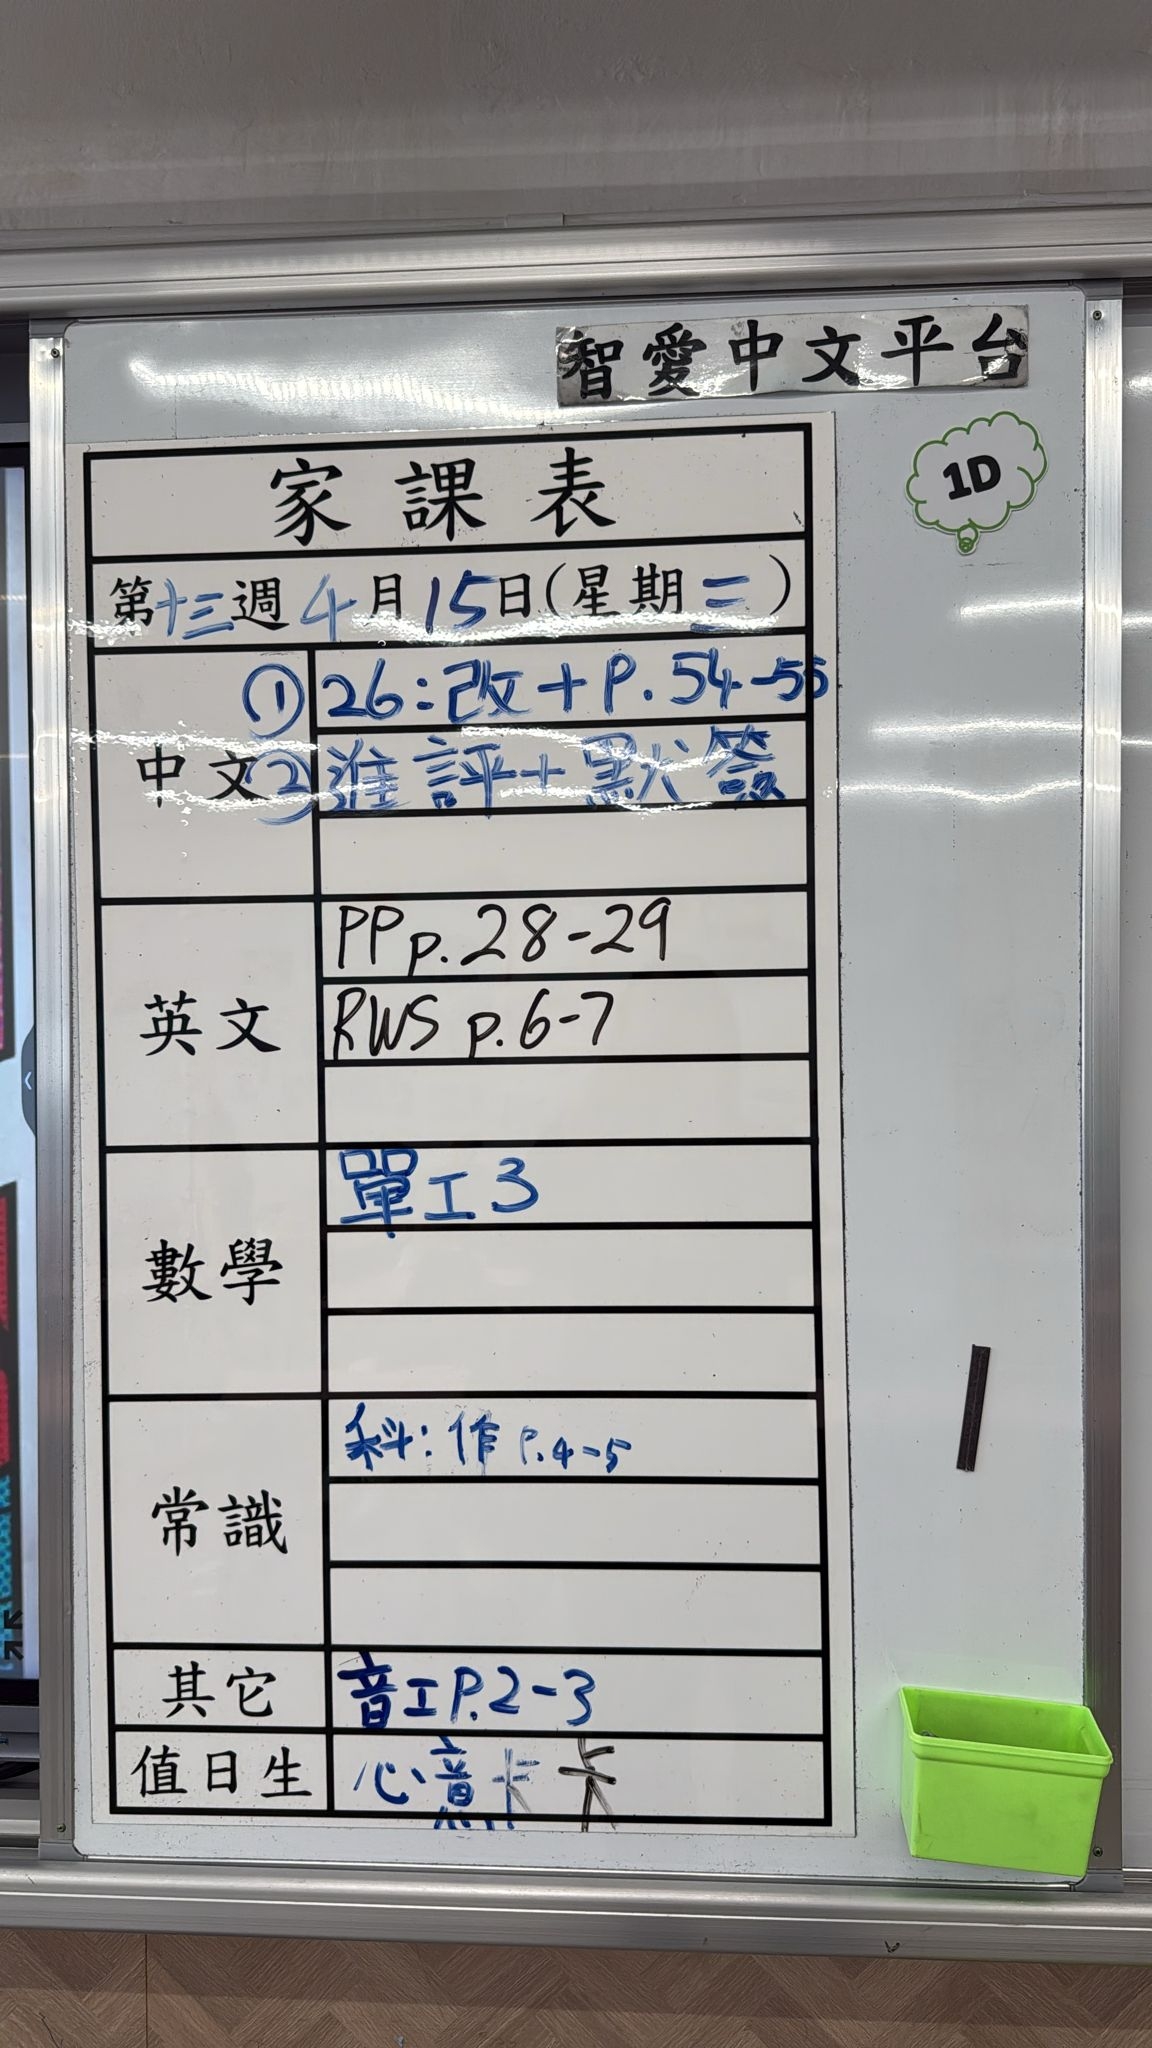 智愛中文平台
1D
家課表
第十三週 4月15日(星期二)
中文
① 26:改+P.54-55
② 進評+默簽
英文
PP p.28-29
RWS p.6-7
數學
單工3
常識
科:作P.4-5
其它
音工P.2-3
值日生
心意卡 卡